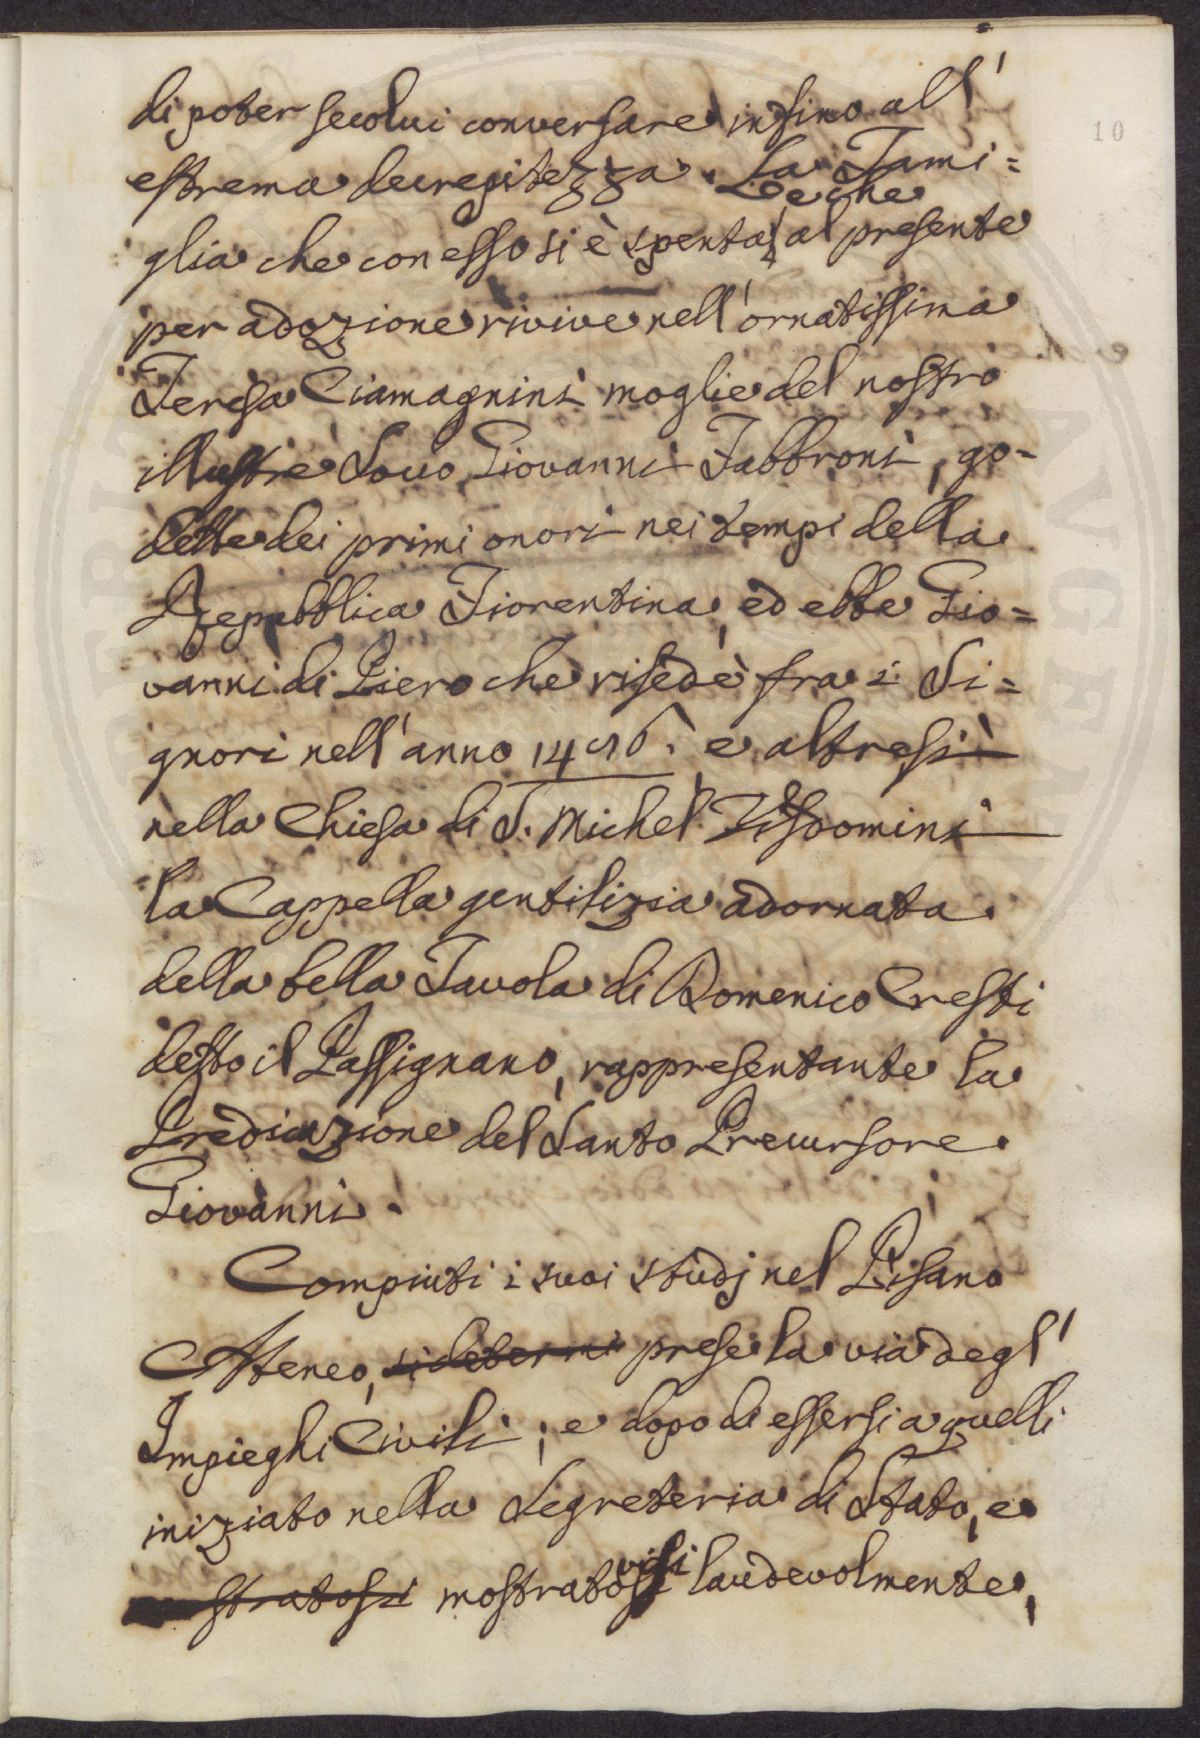 10
di poter secolui conversare insino all'
estrema decrepitezza. La Fami=
e che
glia che con esso si è spenta, al presente
per adozione rivive nell'ornatissima
Teresa Ciamagnini moglie del nostro
illustre Socio Giovanni Fabbroni, go-
dette dei primi onori nei tempi della
Repubblica Fiorentina, ed ebbe Gio=
vanni di Piero che risedè fra i Si=
gnori nell'anno 1496. e altresì
nella Chiesa di S. Michel Visdomini
la Cappella gentilizia adornata
della bella Tavola di Domenico Cresti
detto il Passignano, rappresentante la
Predicazione del Santo Precursore
Giovanni.
Compiuti i suoi studj nel Pisano
Ateneo, prese la via degl'
Impieghi Civili; e dopo di essersi a quelli
iniziato nella Segreteria di Stato, e
stratosi mostratovisi laudevolmente,